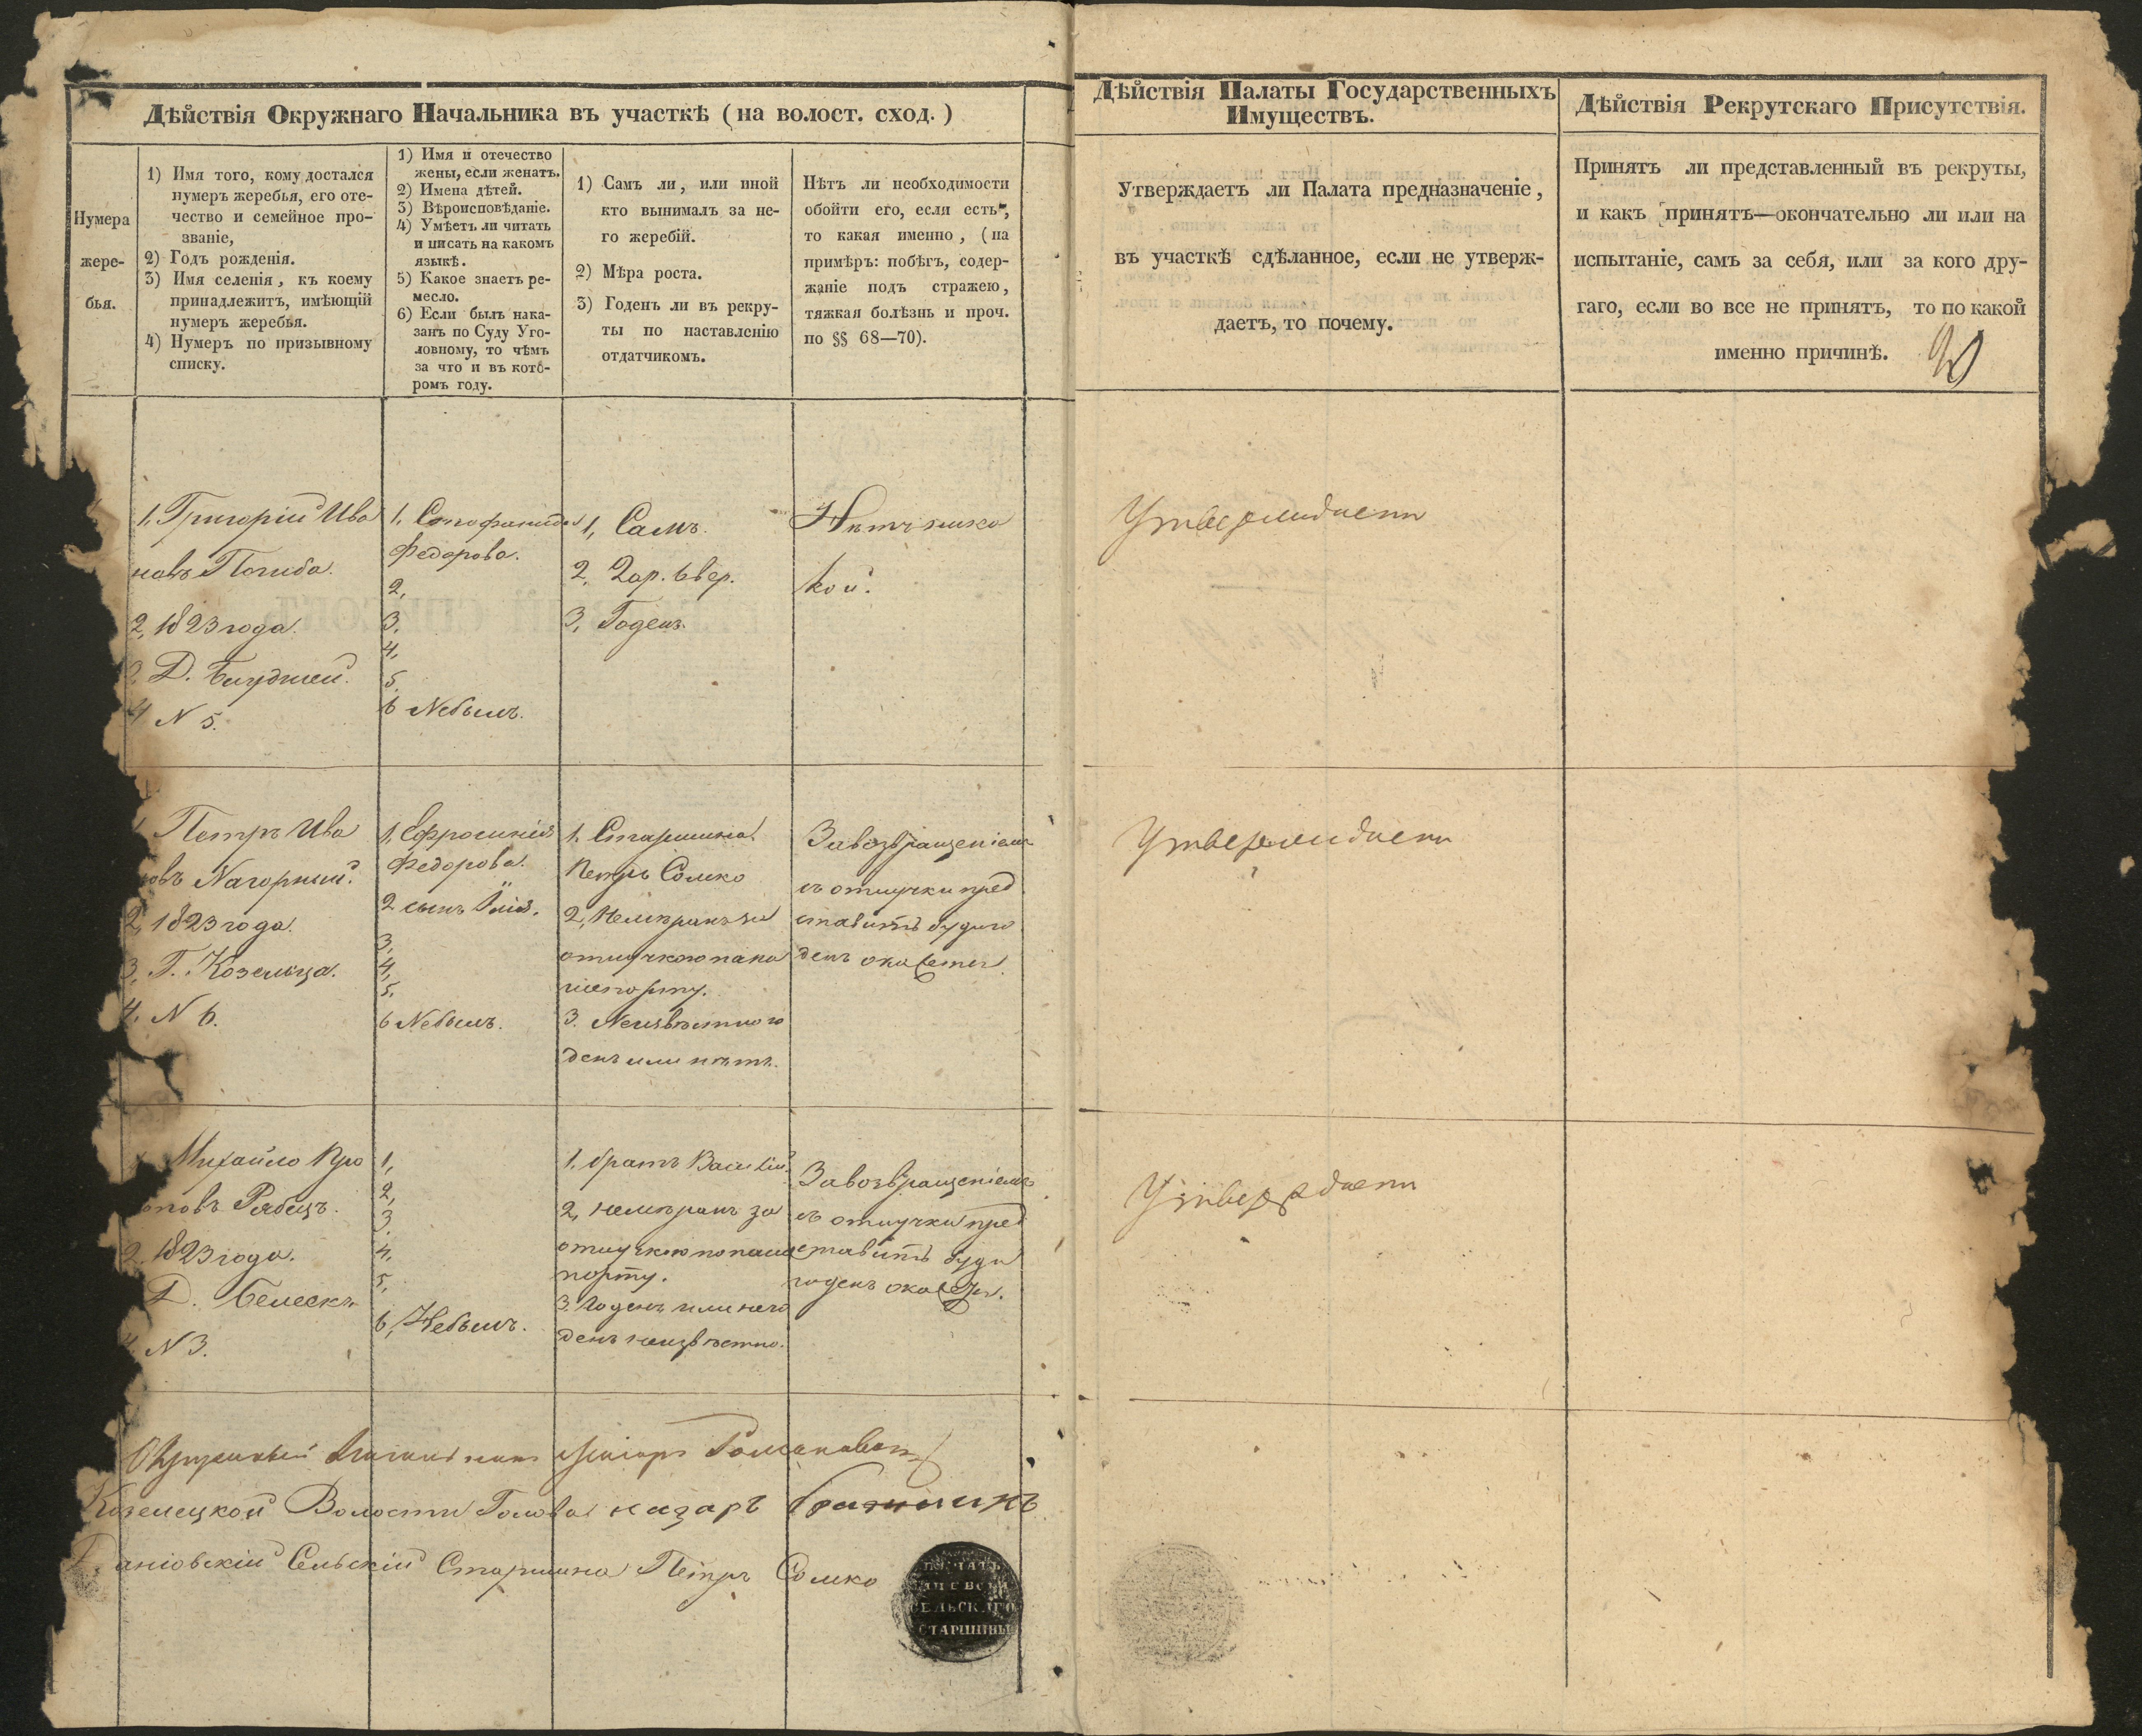 Дѣйствія Окружнаго Начальника въ участкѣ (на волост. сход.)
Нумера
жере-
бья.
1) Имя того, кому достался
нумеръ жеребья, его оте-
чество и семейное про-
званіе,
2) Годъ рожденія.
3) Имя селенія, къ коему
принадлежитъ, имѣющій
нумеръ жеребья.
4) Нумеръ по призывному
списку.
1) Имя и отечество
жены, если женатъ.
2) Имена дѣтей.
3) Вѣроисповѣданіе.
4) Умѣетъ ли читать
и писать на какомъ
языкѣ.
5) Какое знаетъ ре-
месло.
6) Если былъ нака-
занъ по Суду Уго-
ловному, то чѣмъ
за что и въ кото-
ромъ году.
1) Самъ ли, или иной
кто вынималъ за не-
го жеребій.
2) Мѣра роста.
3) Годенъ ли въ рекру-
ты по наставленію
отдатчикомъ.
Нѣтъ ли необходимости
обойти его, если есть,
то какая именно, (на
примѣръ: побѣгъ, содер-
жаніе подъ стражею,
тяжкая болѣзнь и проч.
по §§ 68—70).
Дѣйствія Палаты Государственныхъ
Имуществъ.
Утверждаетъ ли Палата предназначеніе,
въ участкѣ сдѣланное, если не утверж-
даетъ, то почему.
Дѣйствія Рекрутскаго Присутствія.
Принятъ ли представленный въ рекруты,
и какъ принятъ—окончательно ли или на
испытаніе, самъ за себя, или за кого дру-
гаго, если во все не принятъ, то по какой
именно причинѣ.
1, Григорій Ива
новъ Погиба.
2, 1823 года.
3, Д.
4 N 5.
1,
Федорова.
2,
3,
4,
5.
6 Небылъ.
1, Самъ.
2, 2 ар. 6 вер.
3, Годенъ.
Нѣтъ ника
кой.
Утверждаетъ
Петръ Ива
новъ Нагорный.
2, 1823 года.
3, Г. Козельца.
4. N 6.
1, Ефросинія
Федорова.
2 сынъ
3,
4,
5,
6 Небылъ.
1. Старшина
Петръ Сомко
2, Немѣранъ за
отлучкою по па
шпорту.
3. Неизвѣстно го
денъ или нѣтъ.
За возвращеніемъ
съ отлучки пред
ставить буди го
денъ окажется.
Утверждаетъ
Михайло Про
повъ Рябецъ.
2, 1823 года.
Д. Белейки
4. N 3.
1,
2,
3.
4,
5,
6, Небылъ.
1. братъ Василій
2, немѣранъ за
отлучкою по паш
порту.
3. Годенъ или него
денъ неизвѣстно.
За возвращеніемъ
съ отлучки пред
ставить буди
годенъ окажется.
Утверждаетъ
Окружный Начальникъ Маіоръ Романовичъ
Козелецкой Волости Голова назаръ
Сельскій Старшина Петръ Сомко
ПЕЧАТЬ
СЕЛЬСКАГО
СТАРШИНЫ